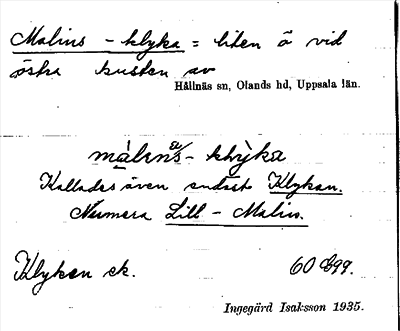 Malins - klyka = liten ö vid
östra kusten av
Hållnäs sn, Olands hd, Uppsala län.
målens - klỳka
Kallades även endast Klykan.
Numera Lill - Malin.
Klyken ek. 60
Ingegärd Isaksson 1935.